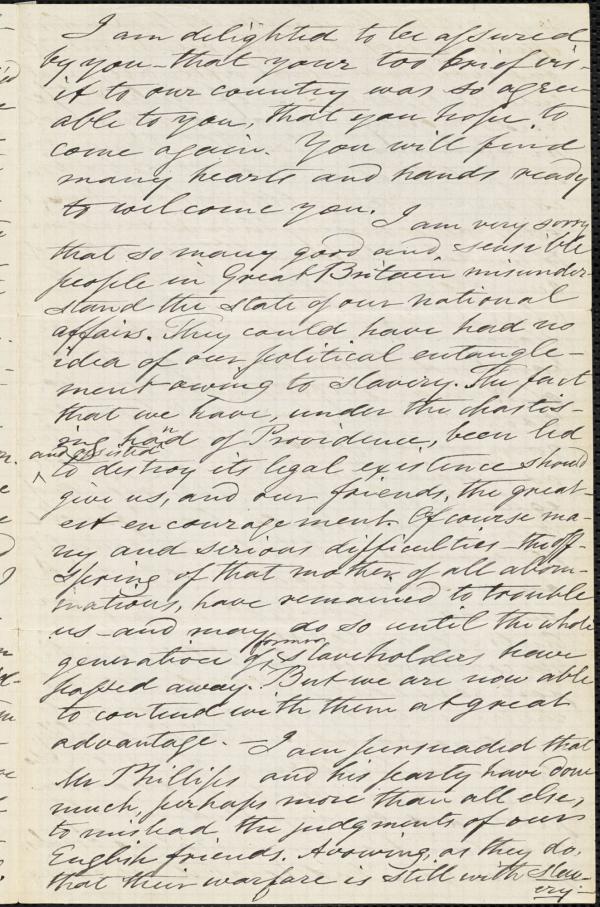 I am delighted to be assured
by you - that your too brief vis-
it to our country was so agree
able to you, that you hope to
come again. You will find
many hearts and hands ready
to welcome you.
I am very sorry
that so many good and sensible
people in Great Britain misunder-
stand the state of our national
affairs. They could have had no
idea of our political entangle-
ment owing to slavery. The fact
that we have, under the chastis-
ing hand of Providence, been led
and assisted
to destroy its legal existence should
give us, and our friends, the great-
est encouragement. Of course ma-
ny and serious difficulties - the off-
spring of that mother of all abom-
inations, have remained to trouble
us - and may do so until the whole
generation of former slaveholders have
passed away. But we are now able
to contend with them at great
advantage. - I am persuaded that
Mr Phillips and his party have done
much, perhaps more than all else,
to mislead the judgments of our
English friends. Avowing, as they do,
that their warfare is still with slav-
ery -